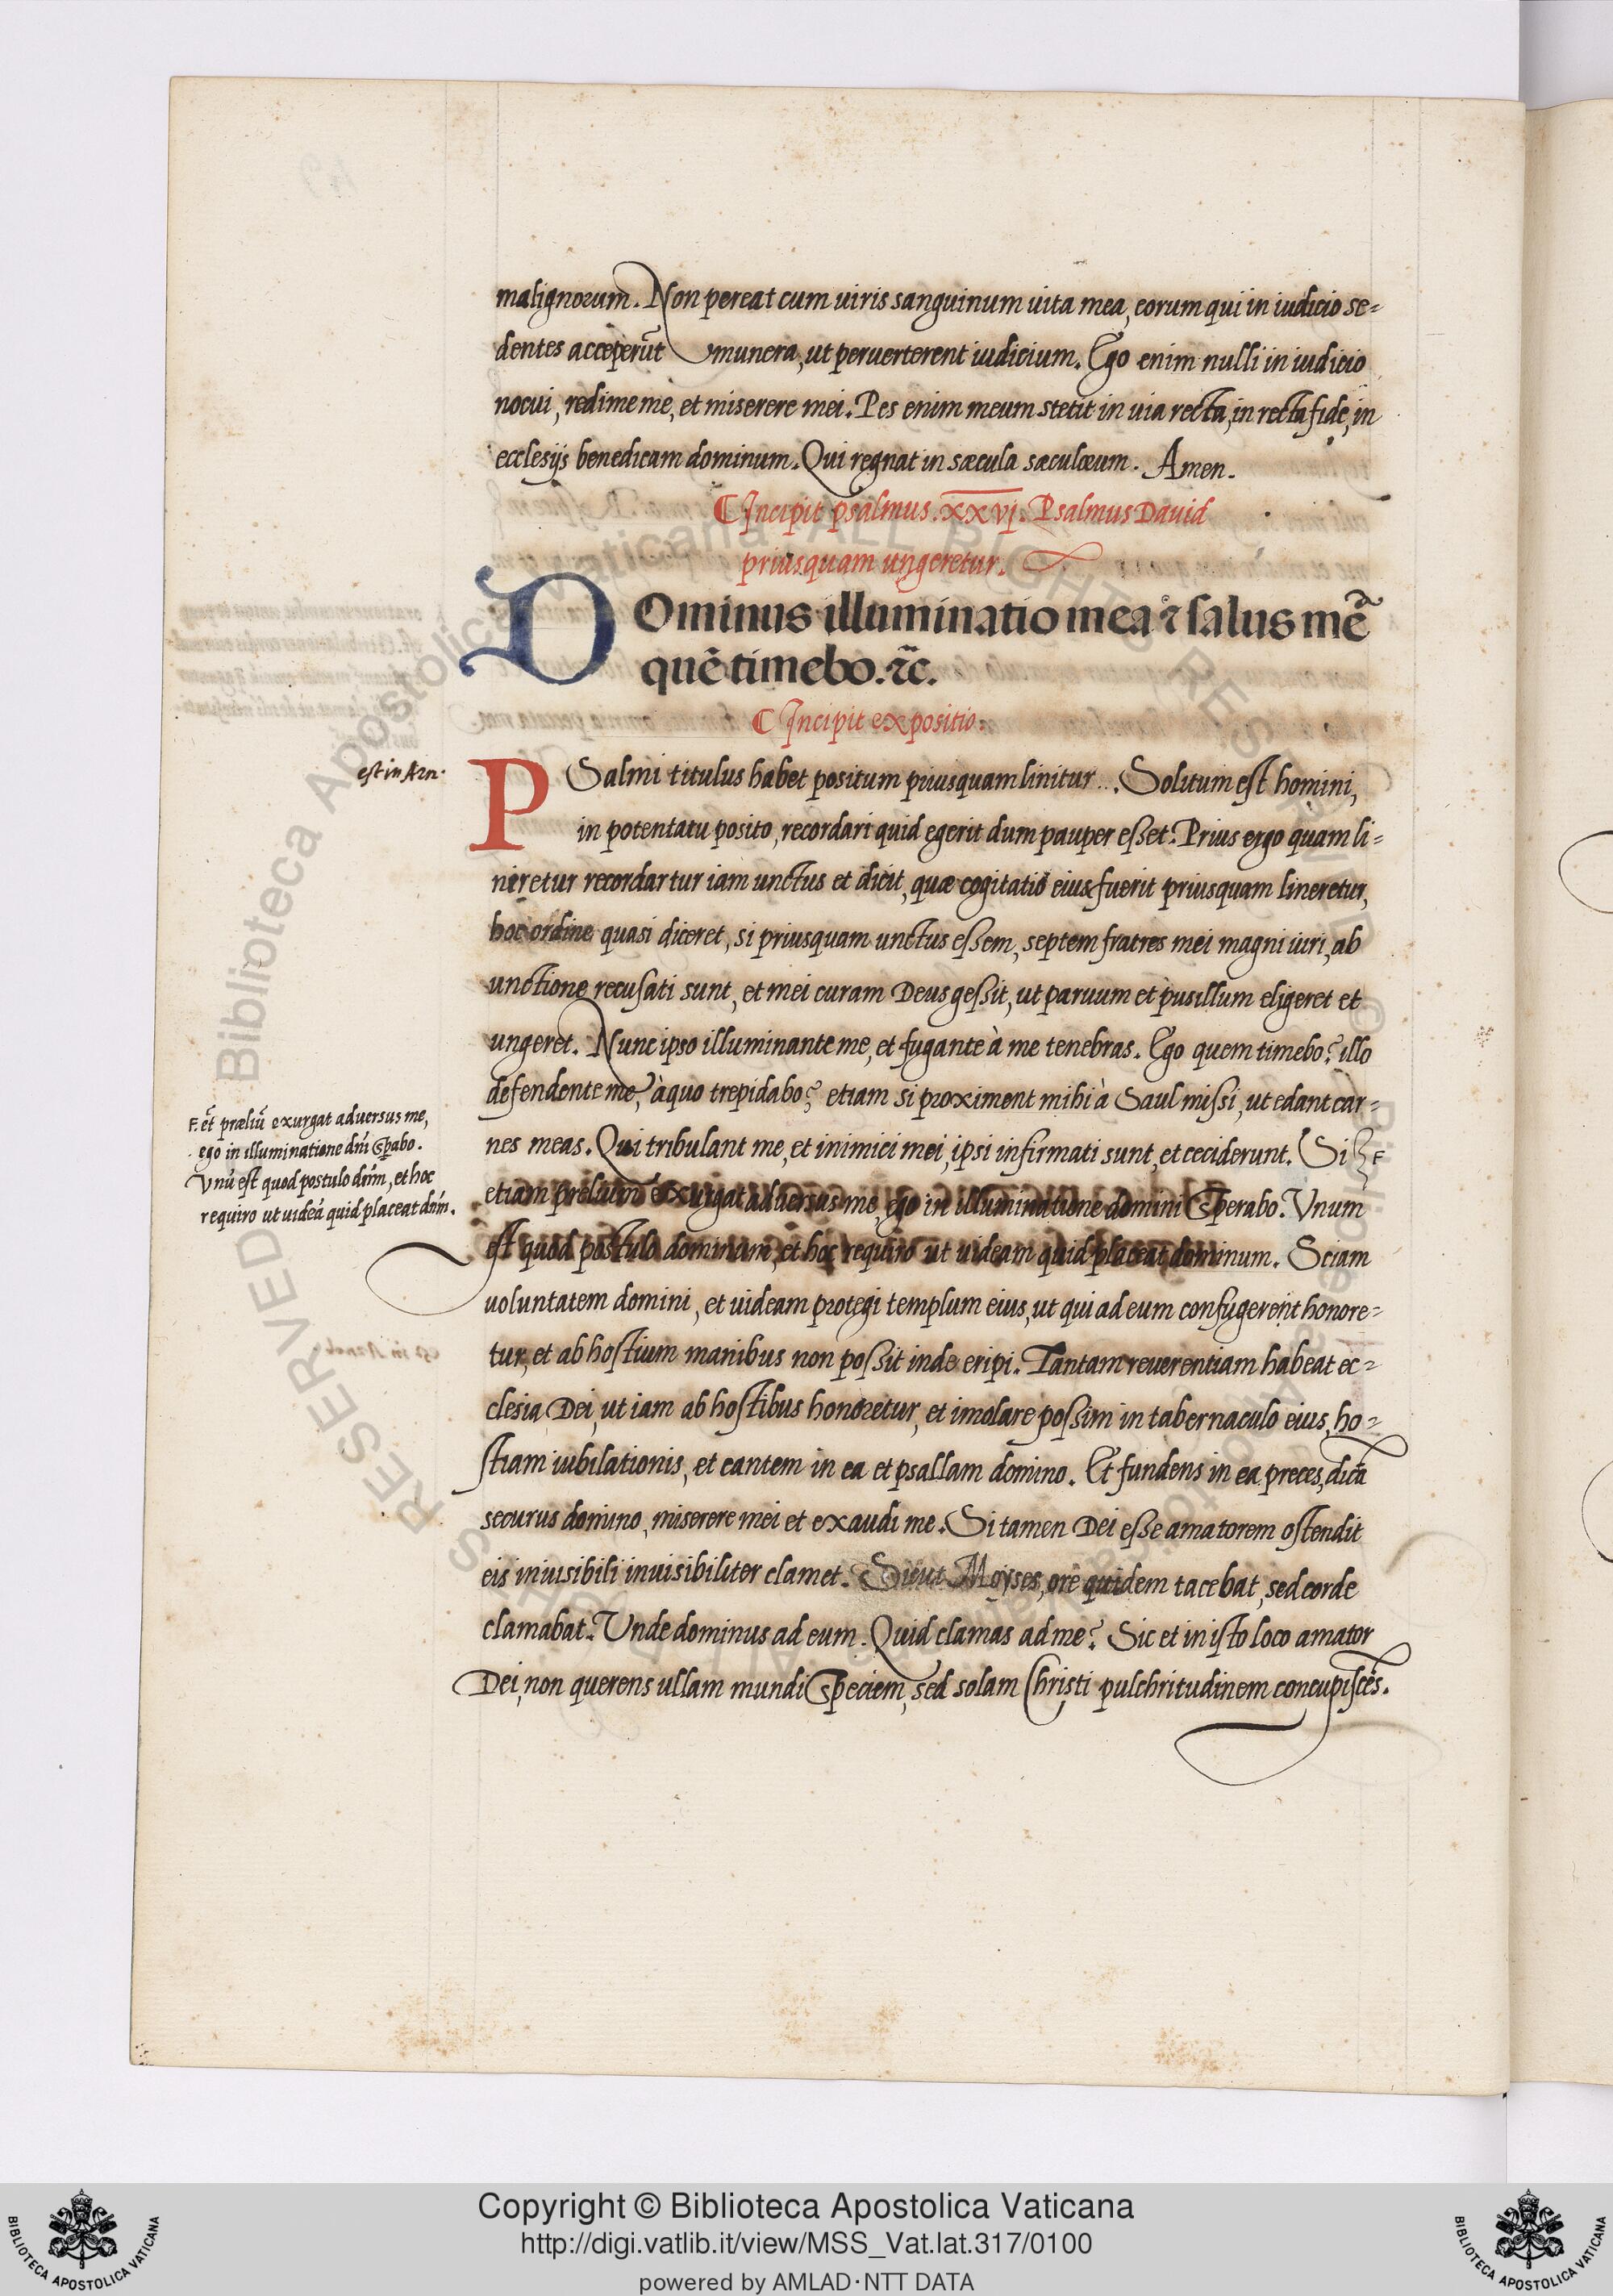 malignorum. Non pereat cum uiris sanguinum uita mea, eorum qui in iudicio se-
dentes acceperūt munera, ut peruerterent iudicium. Ego enim nulli in iudicio
nocui, redime me, et miserere mei. Pes enim meum stetit in uia recta, in recta fide, in
ecclesijs benedicam dominum. Qui regnat in sæcula sæculorum. Amen.
Incipit psalmus .xxvj. Psalmus Dauid
priusquam ungeretur.
DOminus illuminatio mea & salus mea
quē timebo. &c.
Incipit expositio.
est in Arn.
PSalmi titulus habet positum priusquam linitur... Solitum est homini,
in potentatu posito, recordari quid egerit dum pauper esset. Prius ergo quam li-
niretur recordartur iam unctus et dicit, quæ cogitatio eius fuerit priusquam lineretur,
hoc ordine quasi diceret, si priusquam unctus essem, septem fratres mei magni uiri, ab
unctione recusati sunt, et mei curam Deus gessit, ut paruum et pusillum eligeret et
ungeret. Nunc ipso illuminante me, et fugante à me tenebras. Ego quem timebo? illo
defendente me, à quo trepidabo? etiam si proximent mihi à Saul missi, ut edant car-
nes meas. Qui tribulant me, et inimici mei, ipsi infirmati sunt, et ceciderunt. Si F
F. et præliū exurgat aduersus me,
ego in illuminatione dn̄i sperabo.
Vnū est quod postulo dn̄m, et hoc
requiro ut uideā quid placeat dn̄m.
etiam prelium exurgat aduersus me, ego in illuminatione domini sperabo. Vnum
est quod postulo dominum, et hoc requiro ut uideam quid placeat dominum. Sciam
uoluntatem domini, et uideam protegi templum eius, ut qui ad eum confugerent honore-
tur, et ab hostium manibus non possit inde eripi. Tantam reuerentiam habeat ec-
clesia Dei, ut iam ab hostibus honoretur, et imolare possim in tabernaculo eius, ho-
stiam iubilationis, et cantem in ea et psallam domino. Et fundens in ea preces, dicā
securus domino, miserere mei et exaudi me. Si tamen Dei esse amatorem ostendit
eis inuisibili inuisibiliter clamet. Sicut Moyses, ore quidem tacebat, sed corde
clamabat. Unde dominus ad eum. Quid clamas ad me? Sic et in isto loco amator
Dei, non querens ullam mundi speciem, sed solam Christi pulchritudinem concupiscēs.
Copyright © Biblioteca Apostolica Vaticana
http://digi.vatlib.it/view/MSS_Vat.lat.317/0100
powered by AMLAD·NTT DATA
BIBLIOTECA APOSTOLICA VATICANA
BIBLIOTECA APOSTOLICA VATICANA